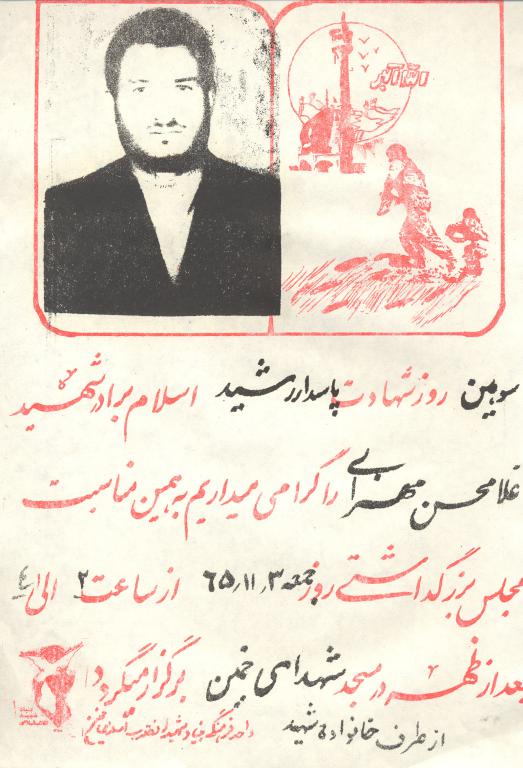 الله اکبر
سومین روز شهادت پاسدار رشید اسلام برادر شهید
غلامحسن مهرابی را گرامی میداریم به همین مناسبت
مجلس بزرگداشتی روز جمعه ۶۵٫۱۱٫۳ از ساعت ۲ الی ٤
بعد از ظهر در مسجد شهدای خمین برگزار میگردد
از طرف خانواده شهید
واحد فرهنگی بنیاد شهید انقلاب اسلامی خمین